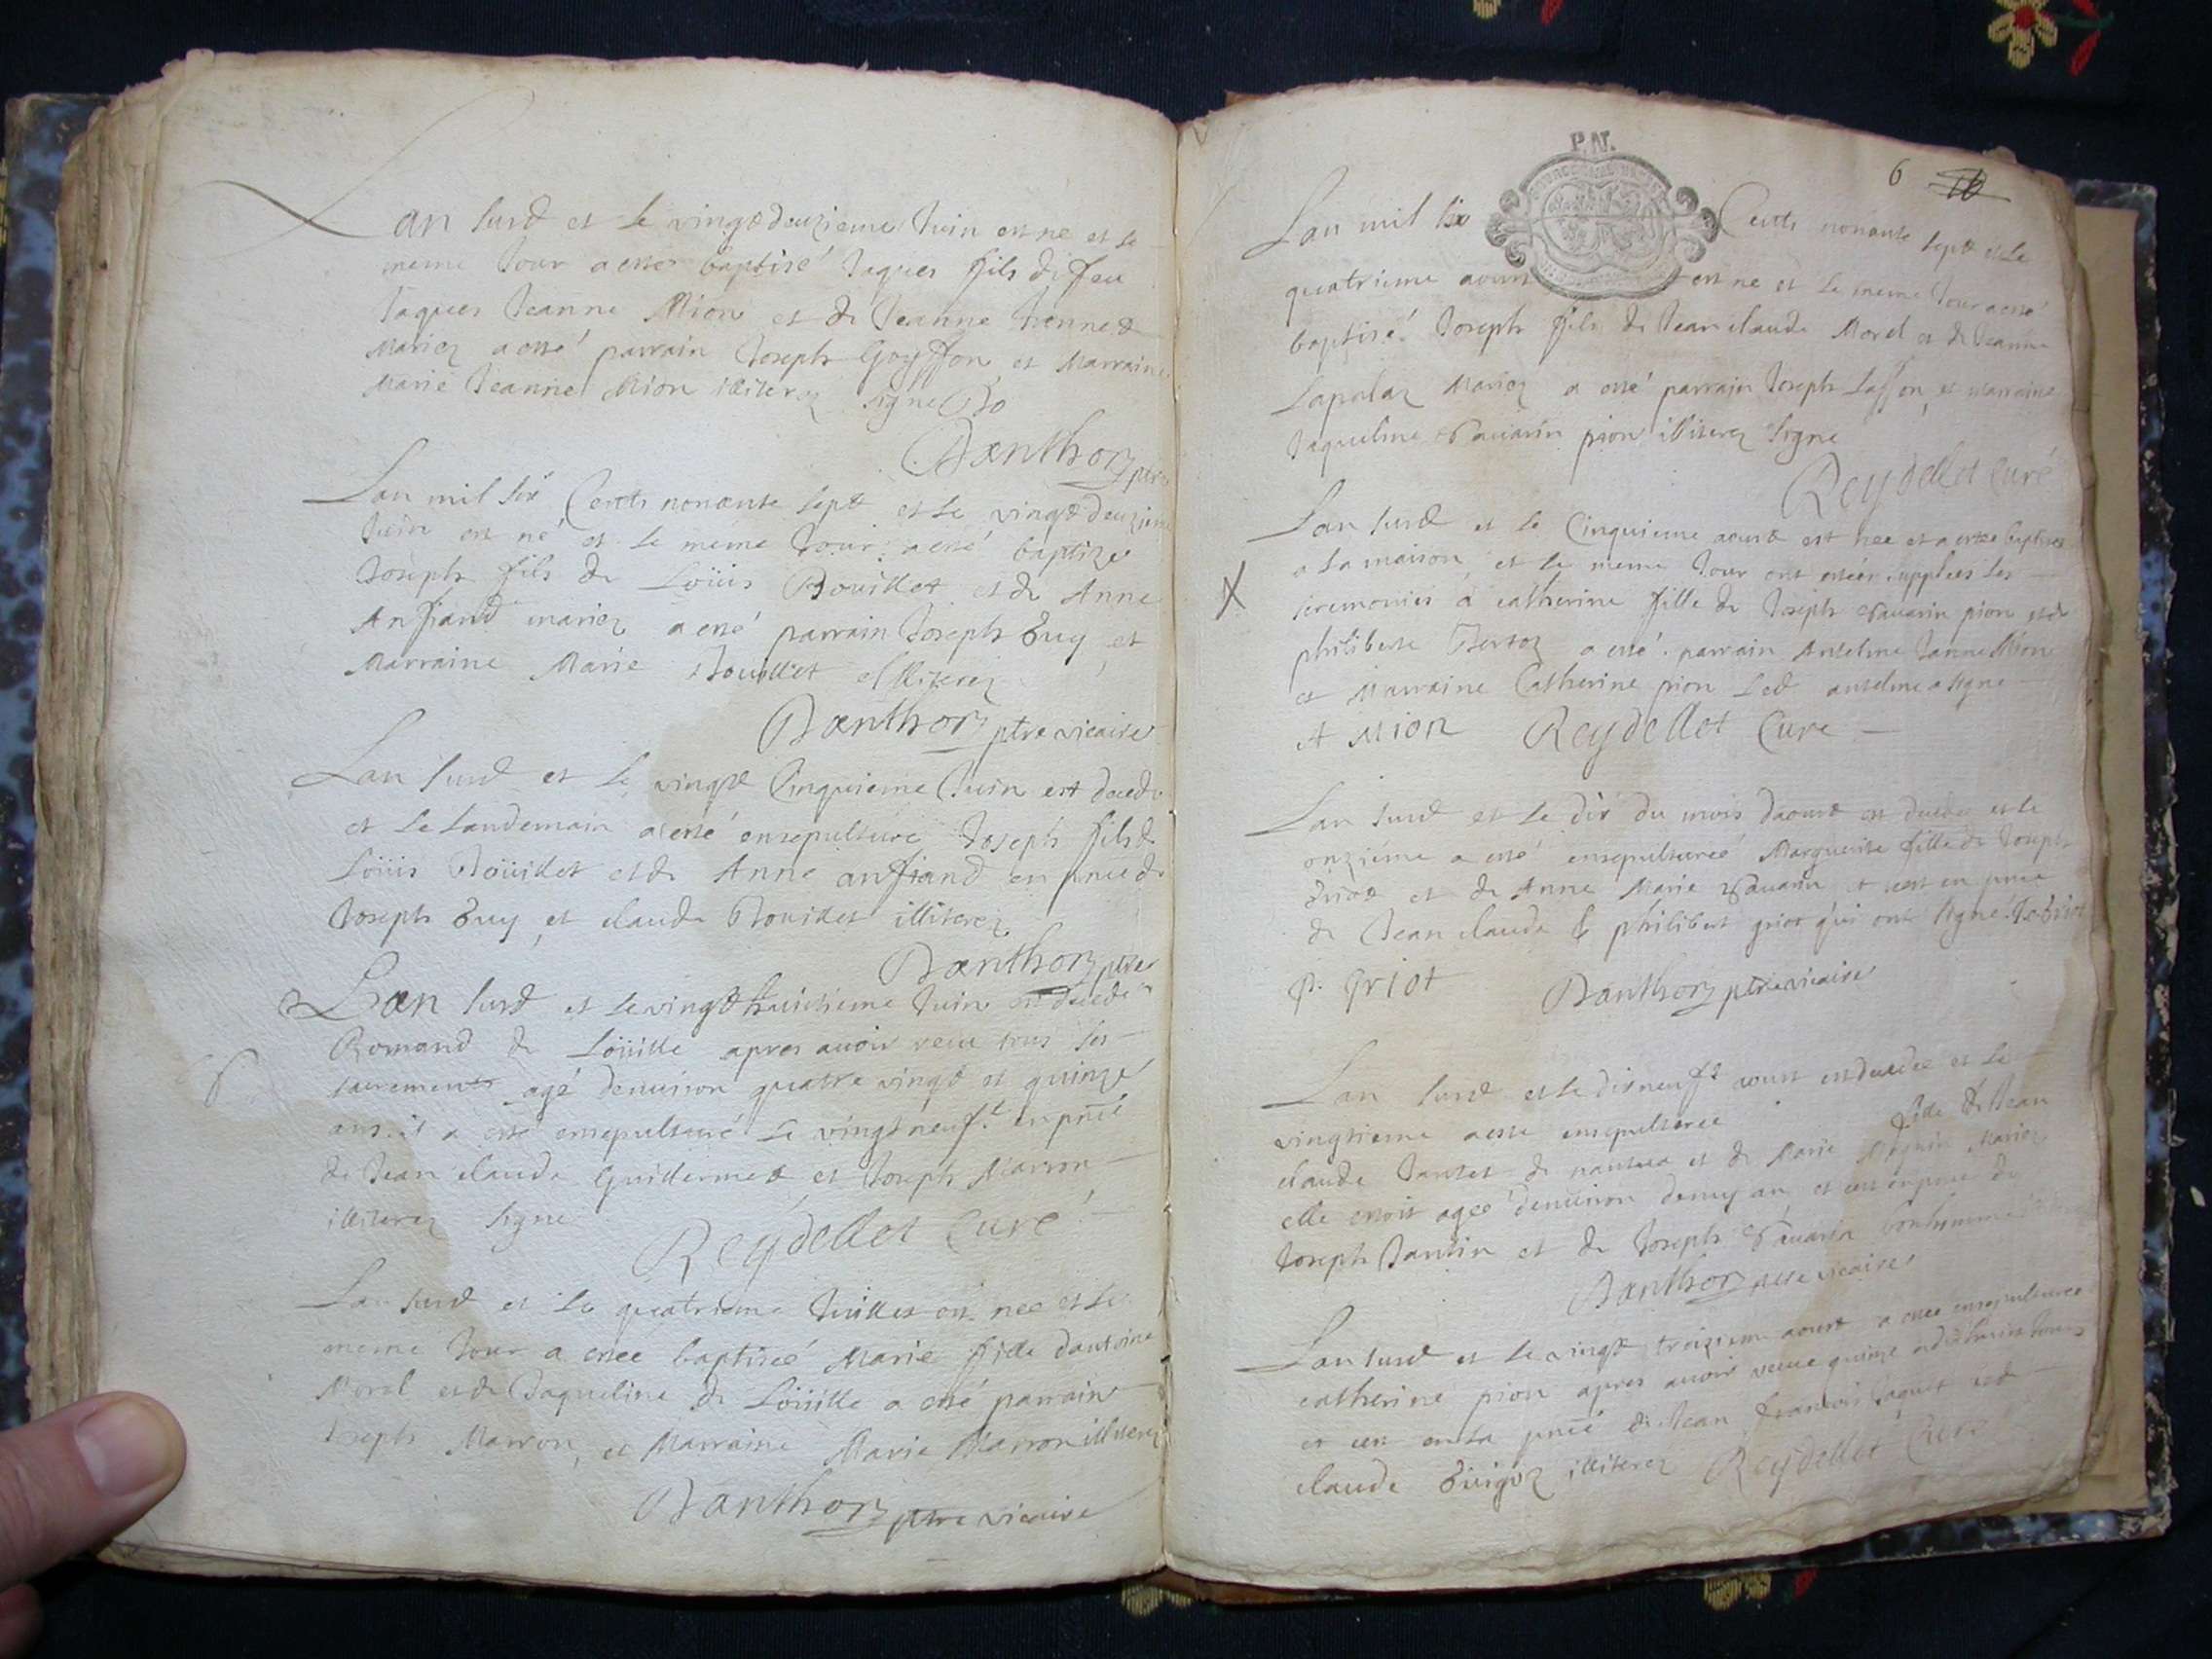 Lan susd et le vingt deuzieme Juin est né et le
meme Jour a esté baptisé Jaques fils de feu
Jaques Jeanne Mion et de Jeanne
Mariez a esté parrain Joseph Goyffon et Marraine
Marie Jeanne Mion illiterez signe
Danthon ptre
Lan mil six Cents nonante sept et le vingt deuzieme
Juin est né et le meme Jour a esté baptize
Joseph fils de Loüis Bouillet et de Anne
Anfiand mariez a esté parrain Joseph Tuy et
Marraine Marie Bouillet illiterez
Danthon ptre vicaire
Lan susd et le vingt Cinquieme Juin est decede
et le landemain a esté ensepulturé Joseph fils de
Loüis Boüillet et de Anne anfiand en pnce de
Joseph Tuy et claude Bouillet illiterez
Danthon ptre
Lan susd et le vingt huictieme Juin est decede
Romand de Loüille apres avoir receu tous les
sacrements agé denuiron quatre vingt et quinze
ans il a esté ensepulturé le vingt neuf.e en pnce
de Jean claude Guillermet et Joseph Marron
illiterez signe
Reydellet Curé
Lan susd et le quatrieme Juillet est née et le
meme Jour a esteé baptiseé Marie fille dantoine
Morel et de Jaqueline de Loüille a esté parrain
Joseph Marron, et Marraine Marie Marron illiterez
Danthon ptre vicaire
P.N.
6
Lan mil six Cents nonante sept et le
quatrieme aoust est né et le meme Jour a esté
baptisé Joseph fils de Jean claude Morel et de Jeanne
Lapalaz Mariez a esté parrain Joseph Lasson et marraine
Jaqueline Pauarin pion illiterez signe
Reydellet Curé
Lan susd et le Cinquieme aoust est née et a estée baptisée
a la maison, et le meme Jour ont esteés supplees les
X
seremonies a catherine fille de Joseph Pauarin pion et de
philiberte Bertoz a esté parrain Anselme Janne Mion
et Marraine Catherine pion Led anselme a signe
A Mion Reydellet Cure
Lan susd et le dix du mois daoust est decedee et le
onzième a esté ensepultureé Marguerite fille de Joseph
griot et de Anne Marie Pauarin et cest en pnce
de Jean claude & philibert griot qui ont signé
P. griot Danthon ptre vicaire
Lan susd et le dixneuf.e aoust est decedée et le
vingtieme a esté ensepulturee fille de Jean
claude Jantet de nantua et de Marie Mariez
elle estoit ageé denuiron demy an et cest en pnce de
Joseph Jantin et de Joseph Pauarin bonhomme
Danthon ptre vicaire
Lan susd et le vingt troizieme aoust a esteé ensepulturee
catherine pion apres auoir vecue quinze a dixhuict Jours
et cest en la pnce de Jean francois Jaquet et de
claude Guigoz illiterez Reydellet Curé